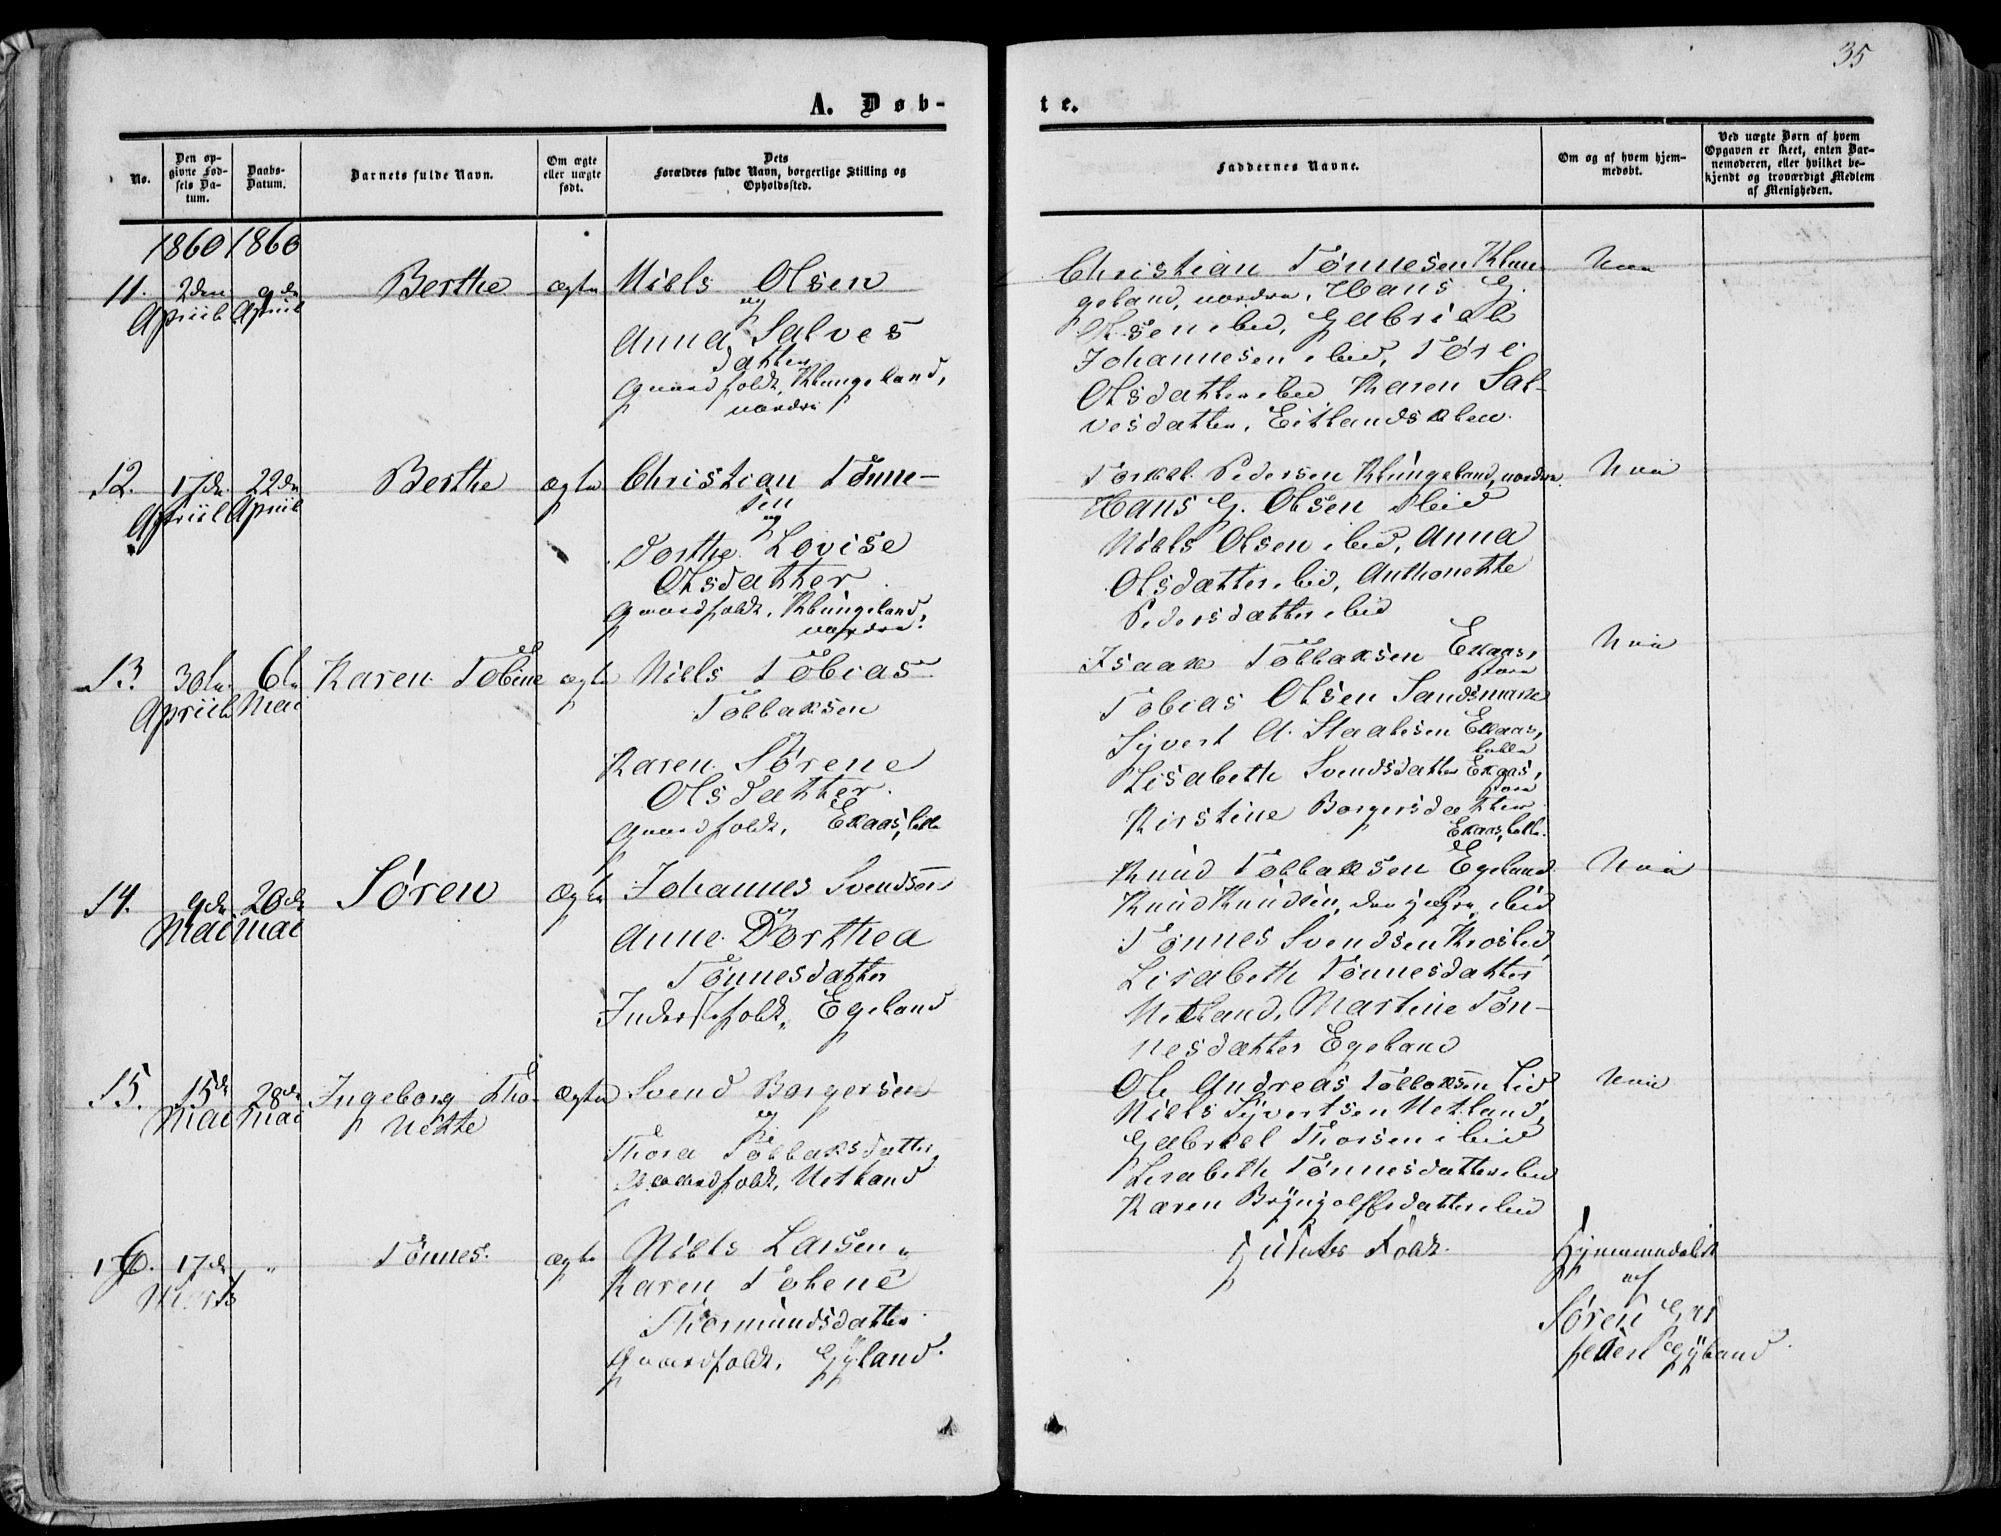 35
A. Døb-
te.
No.
Den op-
givne Fød-
sels Da-
tum.
Daabs-
Datum.
Barnets fulde Navn.
Om ægte
eller uægte
født.
Dets
Forældres fulde Navn, borgerlige Stilling og
Opholdssted.
Faddernes Navne.
Om og af hvem hjem-
medøbt.
Ved uægte Børn af hvem
Opgaven er skeet, enten Bar-
nemoderen, eller hvilket be-
kjendt og troværdigt Medlem
af Menigheden.
1860 1860
11. 2den 9de Berthe ægte Niels Olsen
Apriil Apriil og
Anna Salves
datter
Gaardfolk, Klungeland,
nordre
Christian Tønnesen Klun-
geland, nordre, Hans G.
Olsen ibid, Gabriel
Johannesen ibid, Tore
Olsdatter ibid Karen Sal-
vesdatter, Eitlandsklev.
Nei
12. 17de 22de Berthe ægte Christian Tønne-
Apriil Apriil sen
og
Dorthe Lovise
Olsdatter
Gaardfolk, Klungeland,
nordre.
Torkel Pedersen Klungeland, nordre.
Hans G. Olsen ibid
Niels Olsen ibid, Anna
Olsdatter ibid, Anthonette
Pedersdatter ibid
Nei
13. 30te 6te Karen Tobine ægte Niels Tobias
Apriil Mai Tollaksen
Karen Sørene
Olsdatter
Gaardfolk, Ekaas, lille
Isaak Tollaksen Ekaas,
store
Tobias Olsen Sandsmark
Syvert A. Staalesen Ekaas,
lille
Lisabeth Svendsdatter Ekaas,
store
Kirstine Borgersdatter
Ekaas, lille.
Nei
14. 9de 20de Søren ægte Johannes Svendsen
Mai Mai og
Anne Dorthea
Tønnesdatter
Inderstfolk, Egeland
Knud Tollaksen Egeland
Knud Knudsen, den yngre, ibid
Tønnes Svendsen
Lisabeth Tønnesdatter
Netland, Martine Tøn-
nesdatter Egeland
Nei
15. 15de 28de Ingeborg Tho- ægte Svend Borgersen
Mai Mai nette og
Thora Tollaksdatter,
Gaardfolk, Netland
Ole Andreas Tollaksen Lid
Niels Syvertsen Netland,
Gabriel Thorsen ibid
Lisabeth Tønnesdatter ibid
Karen Brynjolfsdatter ibid
Nei
16. 17de " Tønnes. ægte Niels Larsen
Marts Karen Tolene
Thormundsdatter
Gaardfolk, Gyland.
Hjemmedøbt
af
Søren Gas
peder Gyland.